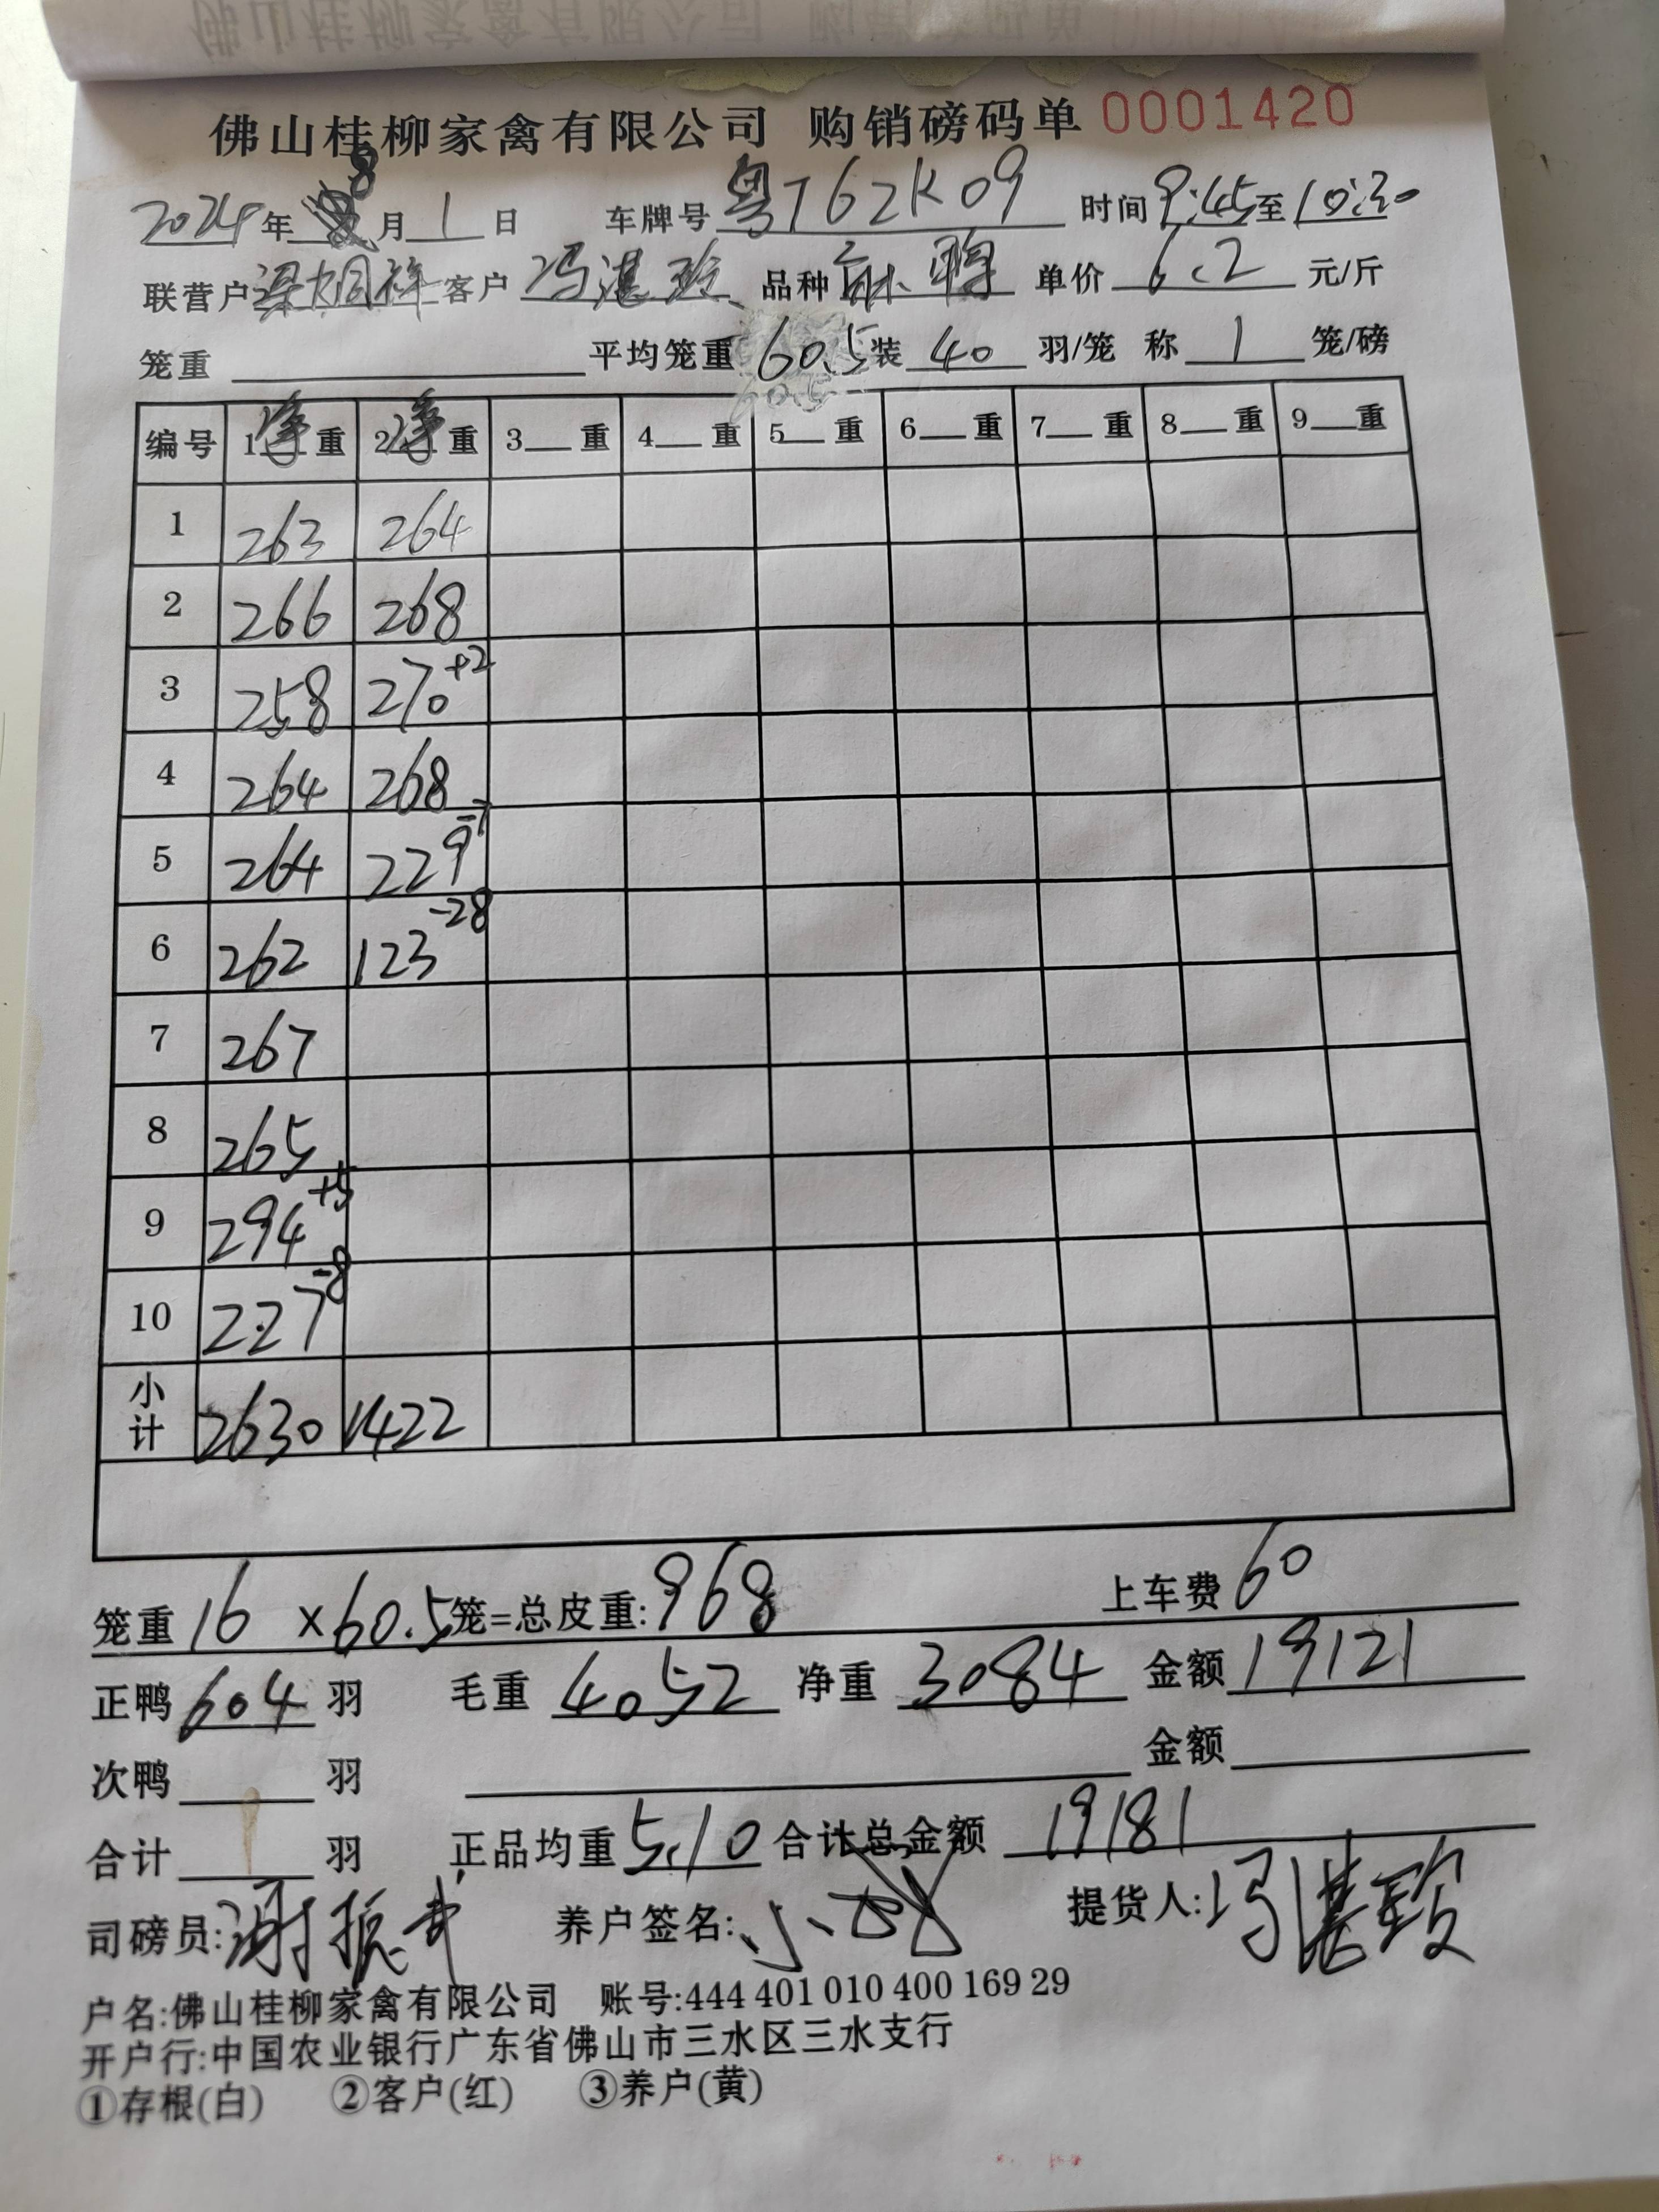 佛山桂柳家禽有限公司 购销磅码单 0001420
2024年 8 月 1 日 车牌号 粤T62K09 时间 9:45 至 10:30
联营户 梁炯祥 客户 冯湛玲 品种 麻鸭 单价 6.2 元/斤
笼重 平均笼重 60.5 装 40 羽/笼 称 1 笼/磅
编号 1净重 2净重 3__重 4__重 5__重 6__重 7__重 8__重 9__重
1 263 264
2 266 268
3 258 270+2
4 264 268
5 264 229-1
6 262 123-28
7 267
8 265
9 294+5
10 227-8
小计 2630 1422
笼重 16 ×60.5笼=总皮重:968 上车费 60
正鸭 604 羽 毛重 4052 净重 3084 金额 19121
次鸭 羽 金额
合计 羽 正品均重 5.10 合计总金额 19181
司磅员: 养户签名: 提货人:冯湛玲
户名:佛山桂柳家禽有限公司 账号:444 401 010 400 169 29
开户行:中国农业银行广东省佛山市三水区三水支行
①存根(白) ②客户(红) ③养户(黄)